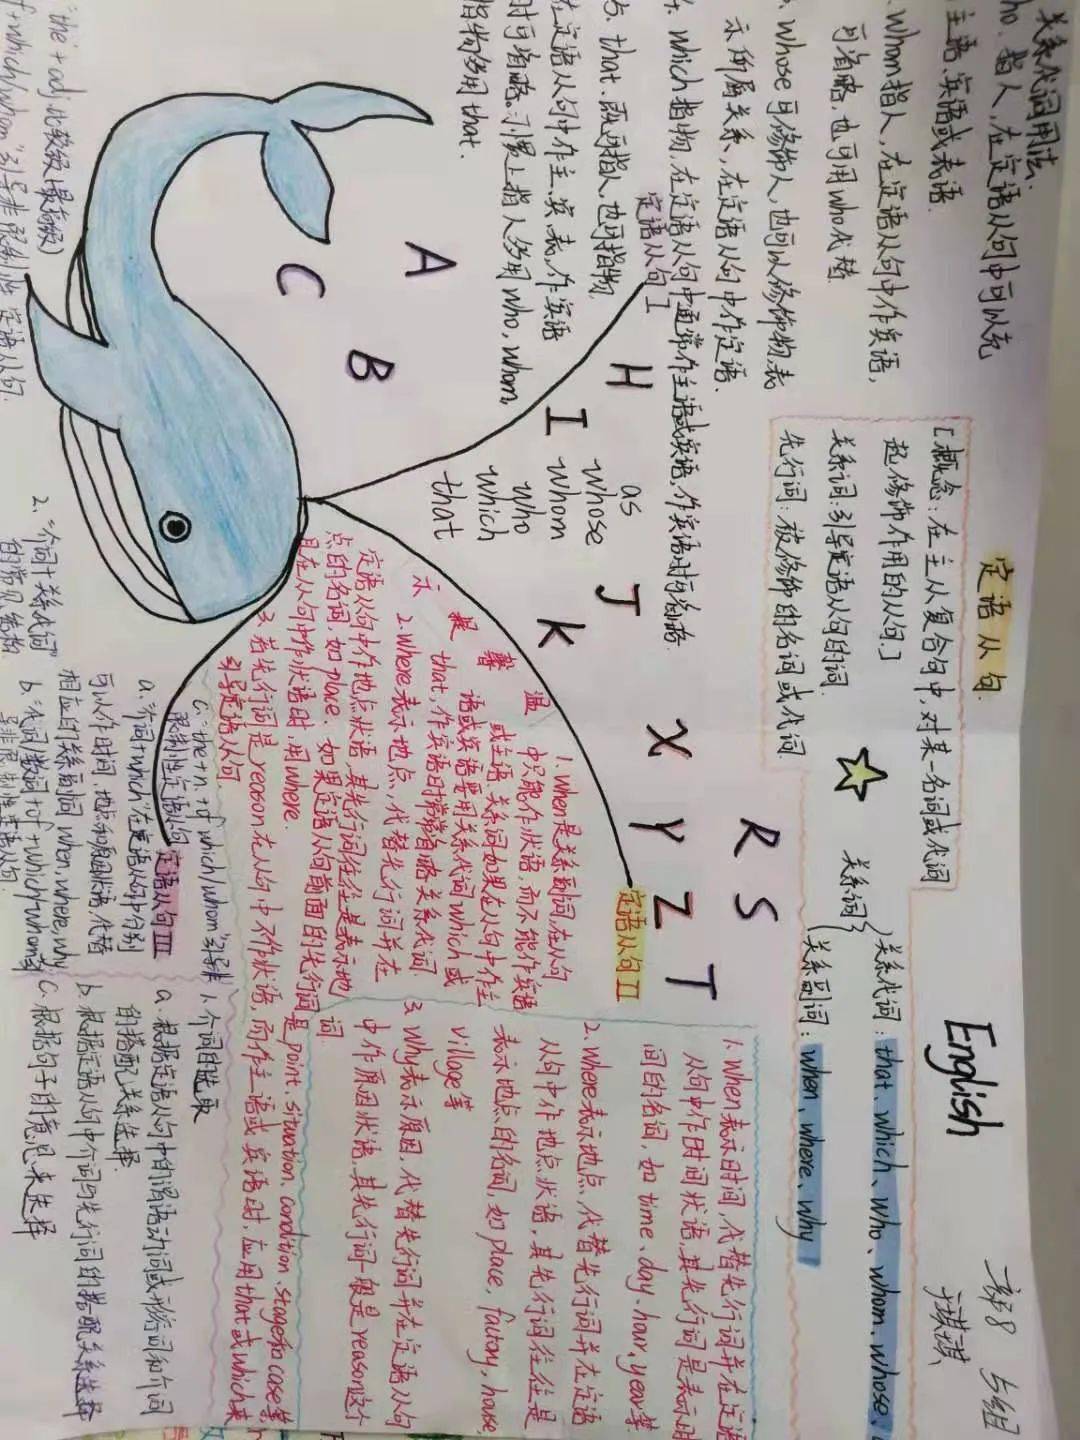 English
定语从句
[概念:在主从复合句中,对某一名词或代词
起修饰作用的从句.]
关系词:引导定语从句的词.
先行词:被修饰的名词或代词
关系词
关系代词:that、which、who、whom、whose、
关系副词:when、where、why
关系代词用法:
ho、指人,在定语从句中可以充
主语、宾语或表语.
whom指人,在定语从句中作宾语,
可省略,也可用who代替
whose可修饰人,也可以修饰物,表
示所属关系,在定语从句中作定语.
which指物,在定语从句中通常作主语或宾语,作宾语时可省略
5、that、既可指人,也可指物.
在定语从句中作主、宾、表、作宾语
时可省略,习惯上指人多用who,whom,
指物多用that.
定语从句I
A
B
C
H
I
J
K
X
Y
Z
R
S
T
as
whose
whom
who
which
that
定语从句II
1.When表示时间,代替先行词并在定语
从句中作时间状语,其先行词是表示时
间的名词,如time、day、hour、year等
2.Where表示地点,代替先行词并在定语
从句中作地点状语,其先行词往往是
表示地点的名词,如place,factory,house
village等
3、Why表示原因,代替先行词并在定语从句
中作原因状语,其先行词一般是reason这个
词
温
馨
提
示
1.when是关系副词,在从句
中只能作状语,而不能作宾语
或主语,关系词如果在从句中作主
语或宾语要用关系代词which或
that,作宾语时常常省略关系代词
2.Where表示地点,代替先行词并在
定语从句中作地点状语,其先行词往往是表示地
点的名词,如place.如果定语从句前面的先行词是point、situation、condition、stage和case等,
且在从句中作状语时,用where.
3.若先行词是reason在从句中不作状语,而作主语或宾语时,应用that或which来
引导定语从句
定语从句III
1.介词的选取
a.根据定语从句中的谓语动词或形容词和介词
的搭配关系选择
b.根据定语从句中介词与先行词的搭配关系选择
c.根据句子的意思来选择
2.“介词+关系代词”
的常见结构
a.“介词+which”在定语从句中分别
可以作时间,地点和原因状语,代替
相应的关系副词when,where,why
b.“代词/数词+of+which/whom”引
导非限制性定语从句.
c.“the+n.+of which/whom”引导非
限制性定语从句
the+adj.比较级(最高级)
f+which/whom”引导非限制性定语从句.